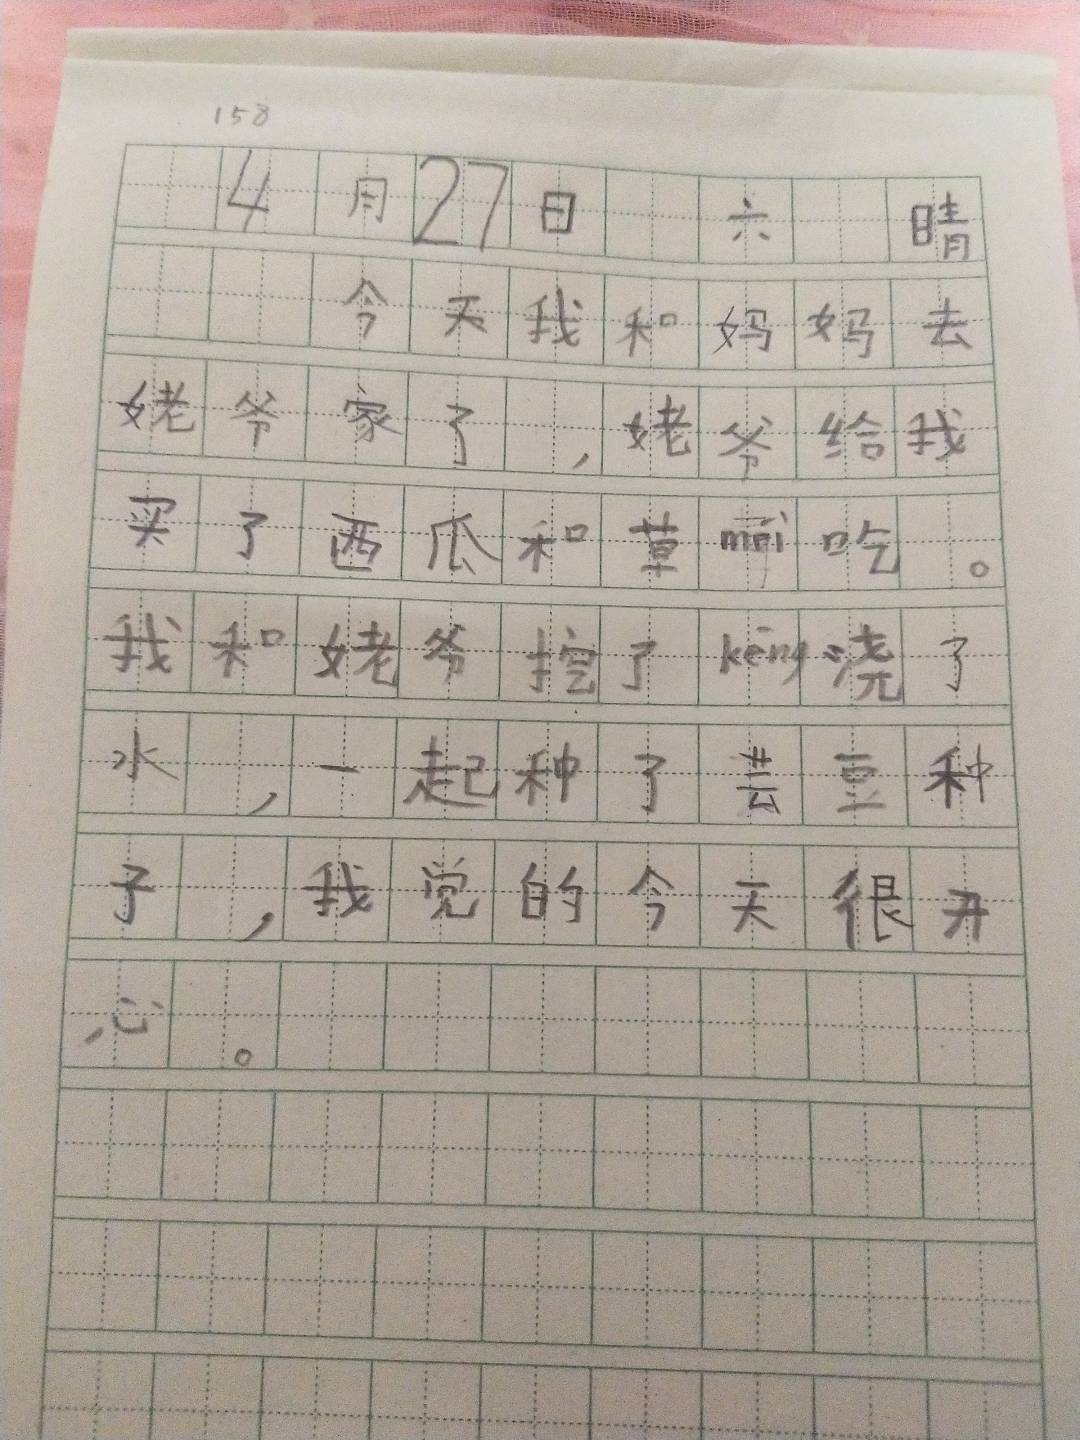 158
4月27日 六 晴
今天我和妈妈去
姥爷家了,姥爷给我
买了西瓜和草méi吃。
我和姥爷挖了kēng浇了
水,一起种了芸豆种
子,我觉的今天很开
心。